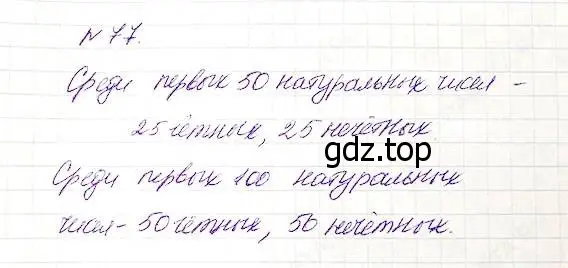 № 77.
Среди первых 50 натуральных чисел -
25 чётных, 25 нечётных.
gdz.top
Среди первых 100 натуральных
чисел - 50 чётных, 50 нечётных.